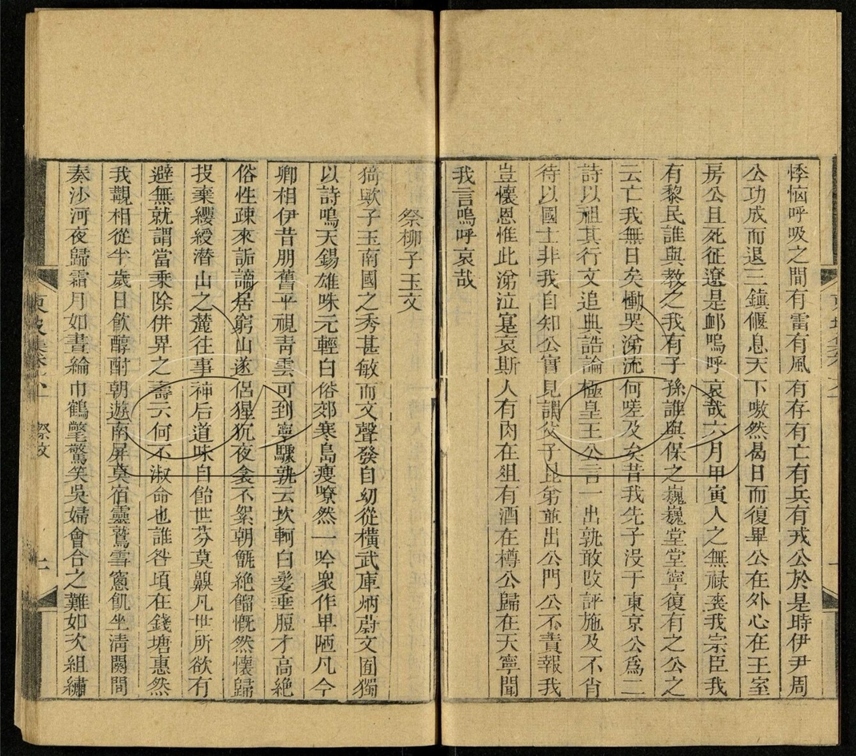 悸恼呼吸之間有雷有風有存有亡有兵有戎公於是時伊尹周
公功成而退三鎮偃息天下嗷然曷日而復畢公在外心在王室
房公且死征遼是卹嗚呼哀哉六月甲寅人之無祿喪我宗臣我
有黎民誰與教之我有子孫誰與保之巍巍堂堂寧復有之公之
云亡我無日矣慟哭涕流何嗟及矣昔我先子沒于東京公爲二
詩以祖其行文追典誥論極皇王公言一出孰敢改評施及不肖
待以國士非我自知公實見謂父子昆弟並出公門公不責報我
豈懷恩惟此涕泣寔哀斯人有肉在俎有酒在樽公歸在天寧聞
我言嗚呼哀哉
祭柳子玉文
猗歟子玉南國之秀甚敏而文聲發自幼從橫武庫炳蔚文囿獨
以詩鳴天錫雄咮元輕白俗郊寒島瘦嘹然一吟衆作卑陋凡今
卿相伊昔朋舊平視青雲可到寧驟孰云坎軻白髮垂脰才高絕
俗性疎來詬謫居窮山遂侶猩狖夜衾不絮朝甑絶餾慨然懷歸
投棄纓綬潛山之麓往事神后道味自飴世芬莫齅凡世所欲有
避無就謂當乘除併畀之壽云何不淑命也誰咎頃在錢塘惠然
我觀相從半歲日飲醇酎朝遊南屏莫宿靈鷲雪窻飢坐清闋間
奏沙河夜歸霜月如晝綸巾鶴氅驚笑吳婦會合之難如次組繡
祭文